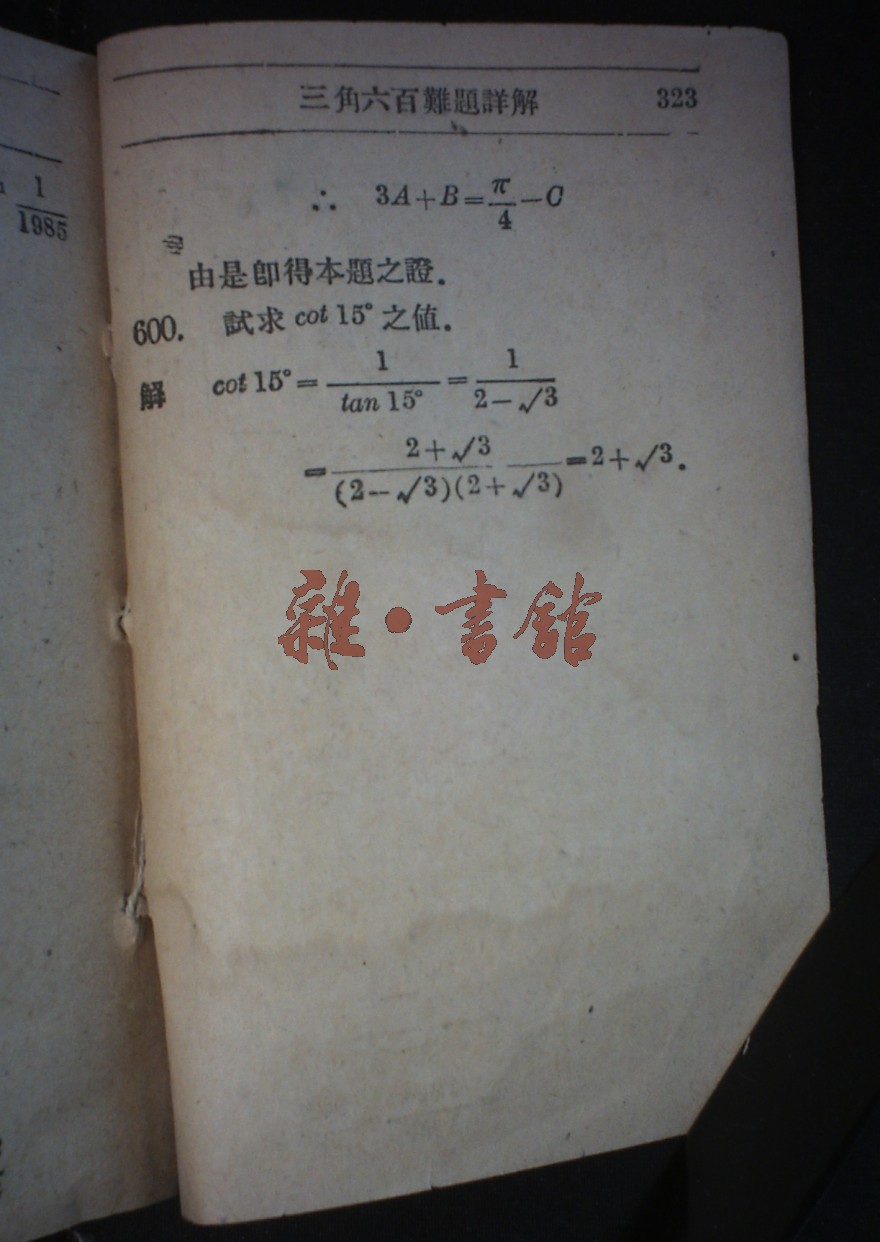 1/1985
三角六百難題詳解 323
∴ 3A+B=π/4−C
由是卽得本題之證.
600. 試求 cot 15° 之値.
解 cot 15°=1/tan 15°=1/(2−√3)
=(2+√3)/((2−√3)(2+√3))=2+√3.
雜·書館